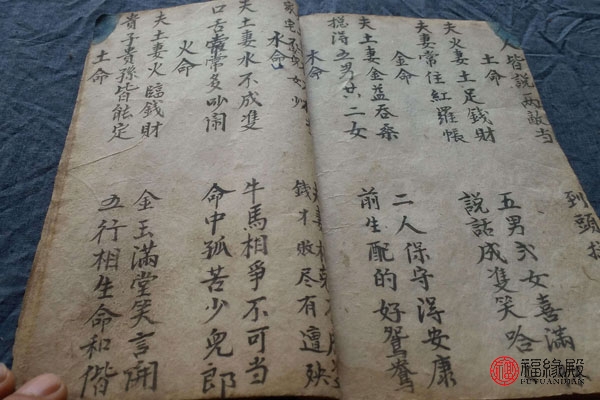 人皆説兩敵当
到頭
土命
夫火妻土足錢財
五男弍女喜滿
夫妻常住紅羅帳
説話成雙笑哈
金命
夫土妻金益吞桑
二人保守得安康
捴得五男廿二女
前生配的好鴛鴦
木命
夫妻相
女少
錢才敗尽有遭殃
水命
夫土妻水不成雙
牛馬相爭不可当
口舌常常多吵闹
命中孤苦少兒郎
火命
夫土妻火臨錢財
金玉滿堂笑言開
貴子貴孫皆能定
五行相生命和偕
土命
福缘殿
FUYUANDIAN